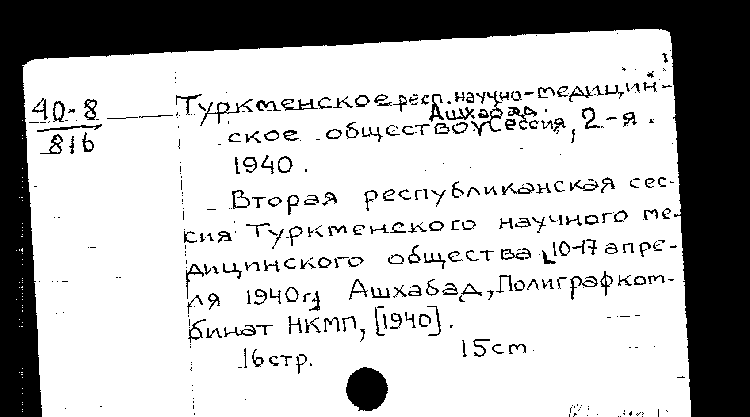 40-8
816
Туркменское респ. научно-медицин-
ское общество. Ашхабад. Сессия, 2-я.
1940.
Вторая республиканская сес-
сия Туркменского научного ме-
дицинского общества [10-17 апре-
ля 1940г] Ашхабад, Полиграфком-
бинат НКМП, [1940].
16 стр. 15 cm